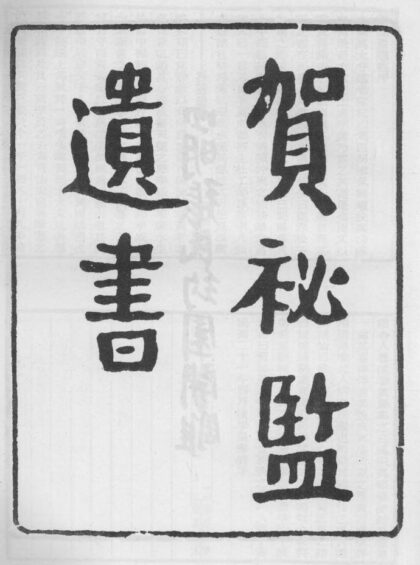 賀祕監
遺書